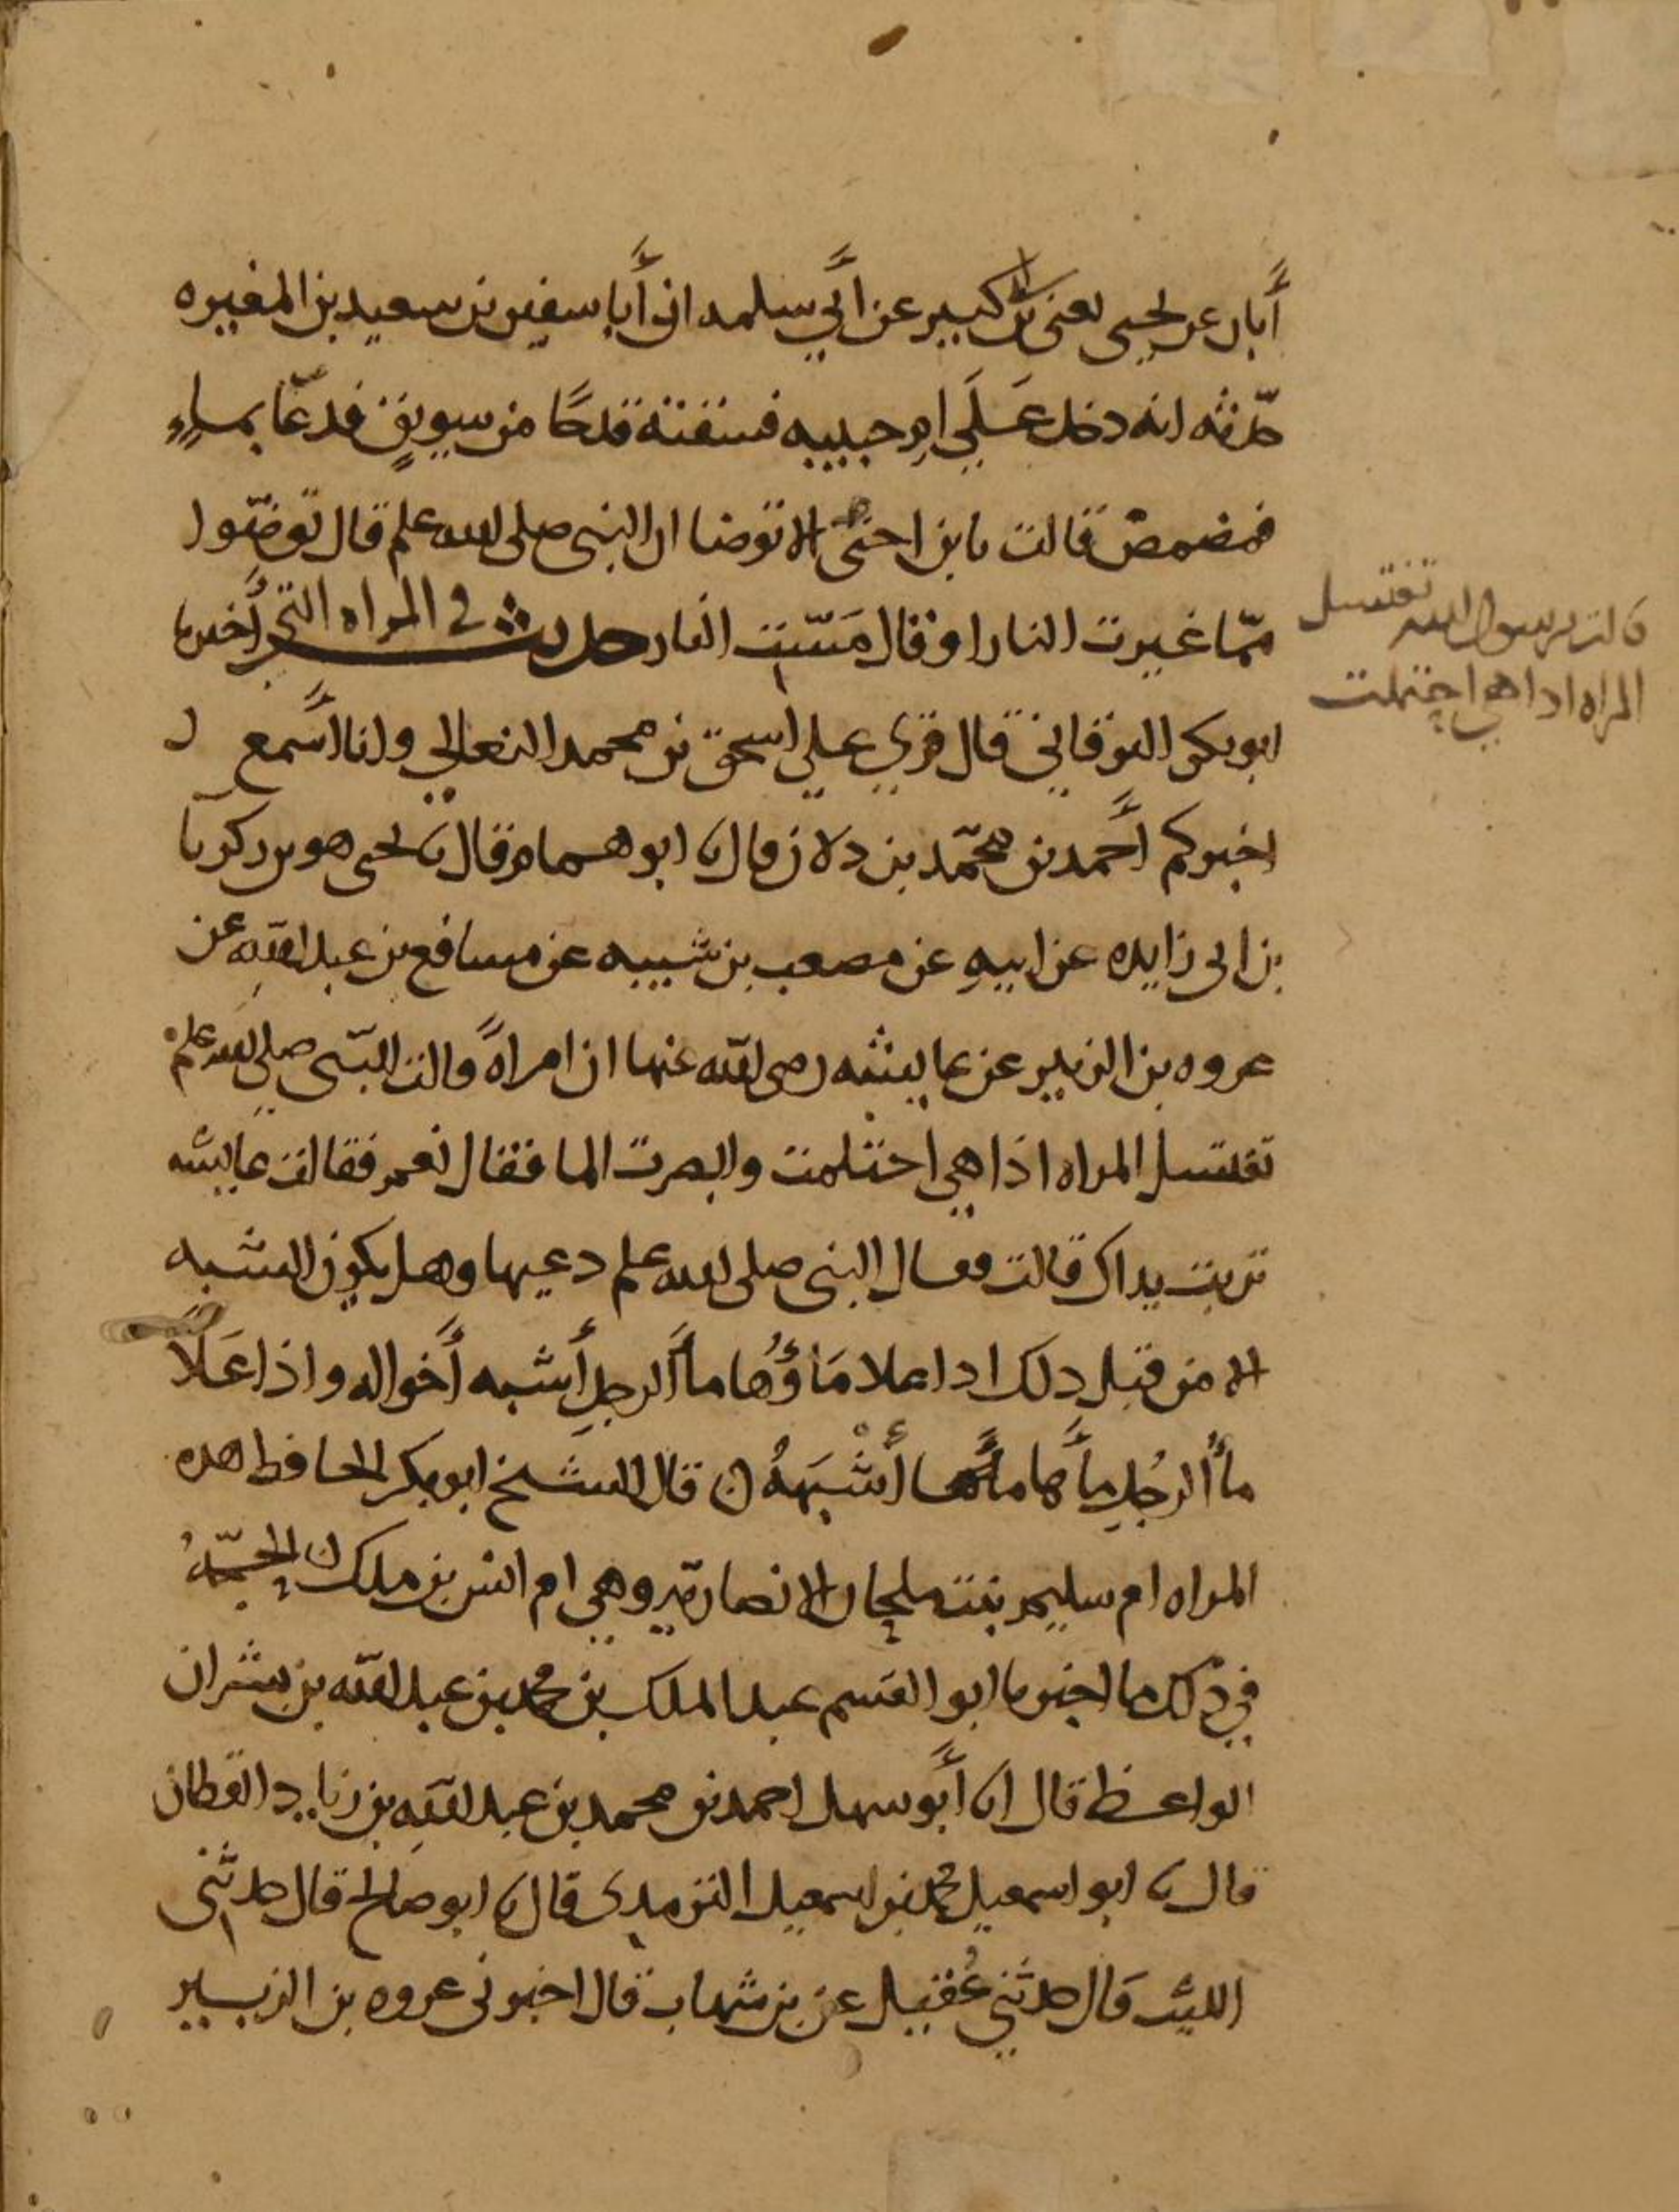 أبان عن يحيى يعني بن ابي كبير عن أبي سلمه ان أبا سفين بن سعيد بن المغيره
حدّثه انه دخل عَلَى ام حبيبه فسقته قدحًا من سويقٍ فدعا بماءٍ
فمضمض قالت يا بن اختي الا توضا ان النبي صلى الله عليه وسلم قال توضّوا
ممّا غيرت النار او قال مَسّت النار حديث في المراه التي أخبرنا
ابو بكر البرقاني قال قري علي اسحق بن محمد النعالي وانا أسمع
اخبركم أحمد بن محمّد بن دلان قال نا ابو همام قال نا يحيى هو بن زكريا
بن ابي زايده عن ابيهِ عن مصعب بن شيبه عن مسافع بن عبد الله عن
عروه بن الزبير عن عايشه رضي الله عنها ان امراةً قالت للنّبي صلى الله عليه وسلم
تغتسل المراه اذا هي احتلمت وابصرت الما فقال نعم فقالت عايشه
تربت يداك قالت فقال النبي صلى الله عليه وسلم دعيها وهل يكون الشبه
الا من قبل ذلك اذا علا مَاؤُها مأَ الرجلِ أشبه أَخواله واذا عَلَا
مأُ الرجُلِ مأَها أَشْبَهَهُ ن قال الشيخ ابو بكر الحافظ هذه
المراه ام سليم بنت ملحان الانصاريّه وهي ام انس بن ملك ن الحجّهُ
في ذلك ما اخبرنا ابو القسم عبد الملك بن محمد بن عبد الله بن بشران
الواعظ قال انا أبو سهل احمد بن محمد بن عبد الله بن زياد القطان
قال نا ابو اسمعيل محمد بن اسمعيل الترمذي قال نا ابو صالح قال حدثني
الليث قال حدثني عُقيل عن بن شهاب قال اخبرني عروه بن الزبير
قالت يرسول الله تغتسل
المراه اذا هي احتلمت